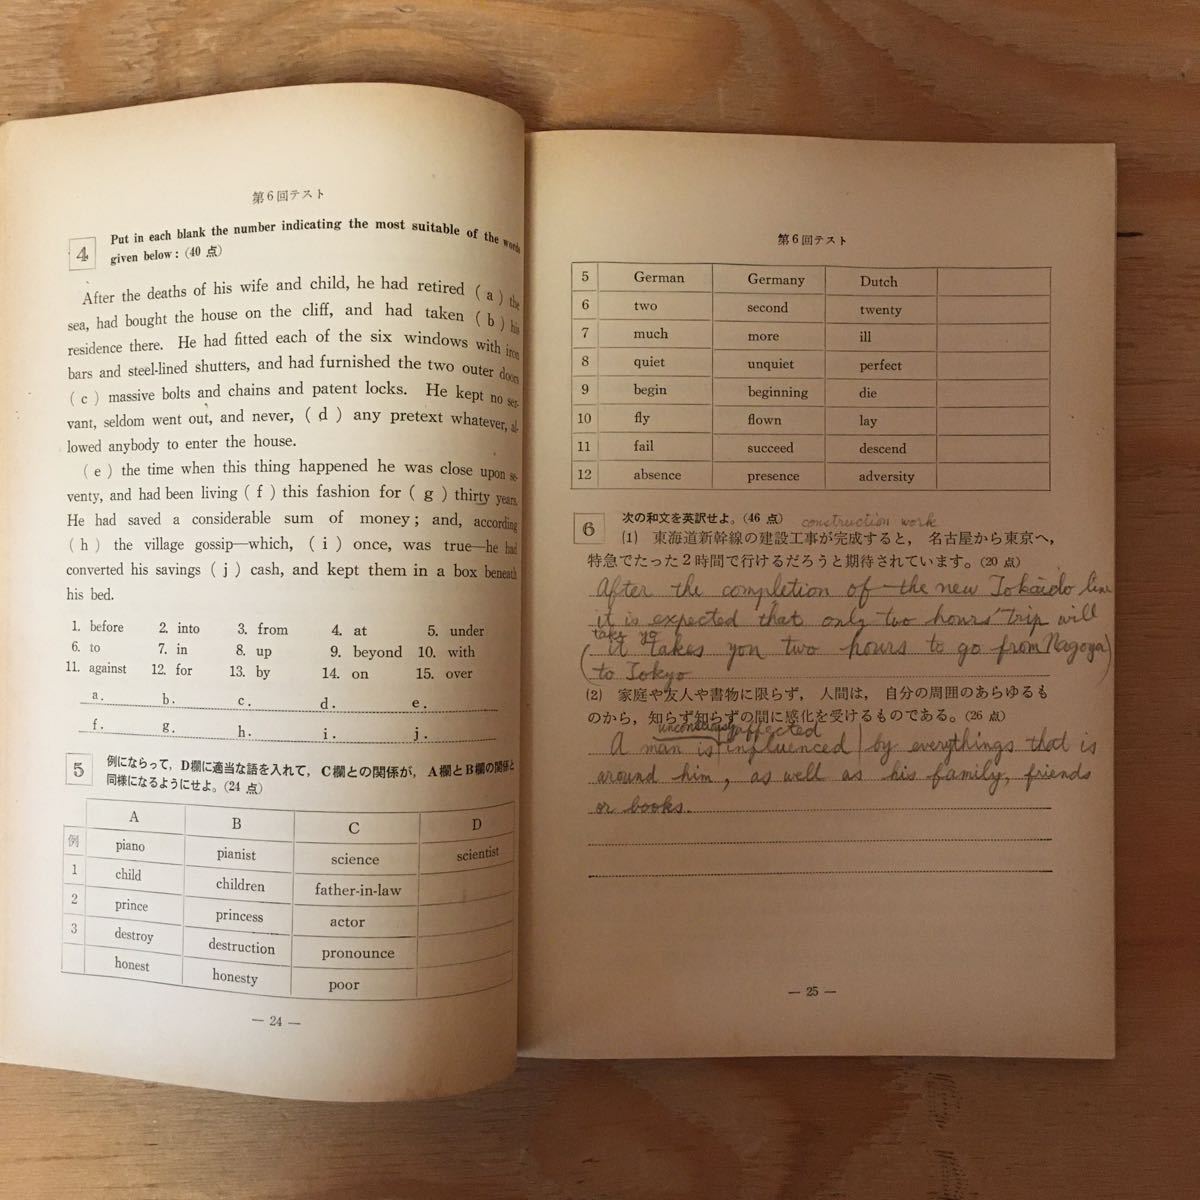 第6回テスト
4 Put in each blank the number indicating the most suitable of the words
given below: (40 点)
After the deaths of his wife and child, he had retired ( a ) the
sea, had bought the house on the cliff, and had taken ( b ) his
residence there. He had fitted each of the six windows with iron
bars and steel-lined shutters, and had furnished the two outer doors
( c ) massive bolts and chains and patent locks. He kept no ser-
vant, seldom went out, and never, ( d ) any pretext whatever, al-
lowed anybody to enter the house.
( e ) the time when this thing happened he was close upon se-
venty, and had been living ( f ) this fashion for ( g ) thirty years.
He had saved a considerable sum of money; and, according
( h ) the village gossip—which, ( i ) once, was true—he had
converted his savings ( j ) cash, and kept them in a box beneath
his bed.
1. before 2. into 3. from 4. at 5. under
6. to 7. in 8. up 9. beyond 10. with
11. against 12. for 13. by 14. on 15. over
a. b. c. d. e.
f. g. h. i. j.
5 例にならって，D欄に適当な語を入れて，C欄との関係が，A欄とB欄の関係と
同様になるようにせよ。(24 点)
A B C D
例 piano pianist science scientist
1 child children father-in-law
2 prince princess actor
3 destroy destruction pronounce
honest honesty poor
— 24 —
第6回テスト
5 German Germany Dutch
6 two second twenty
7 much more ill
8 quiet unquiet perfect
9 begin beginning die
10 fly flown lay
11 fail succeed descend
12 absence presence adversity
6 次の和文を英訳せよ。(46 点) construction work
(1) 東海道新幹線の建設工事が完成すると，名古屋から東京へ，
特急でたった2時間で行けるだろうと期待されています。(20 点)
After the completion of the new Tokaido line
it is expected that only two hours' trip will
take yo
(it takes you two hours to go from Nagoya)
to Tokyo
(2) 家庭や友人や書物に限らず，人間は，自分の周囲のあらゆるも
のから，知らず知らずの間に感化を受けるものである。(26 点)
unconsciously affected
A man is influenced by everythings that is
around him, as well as his family, friends
or books.
— 25 —